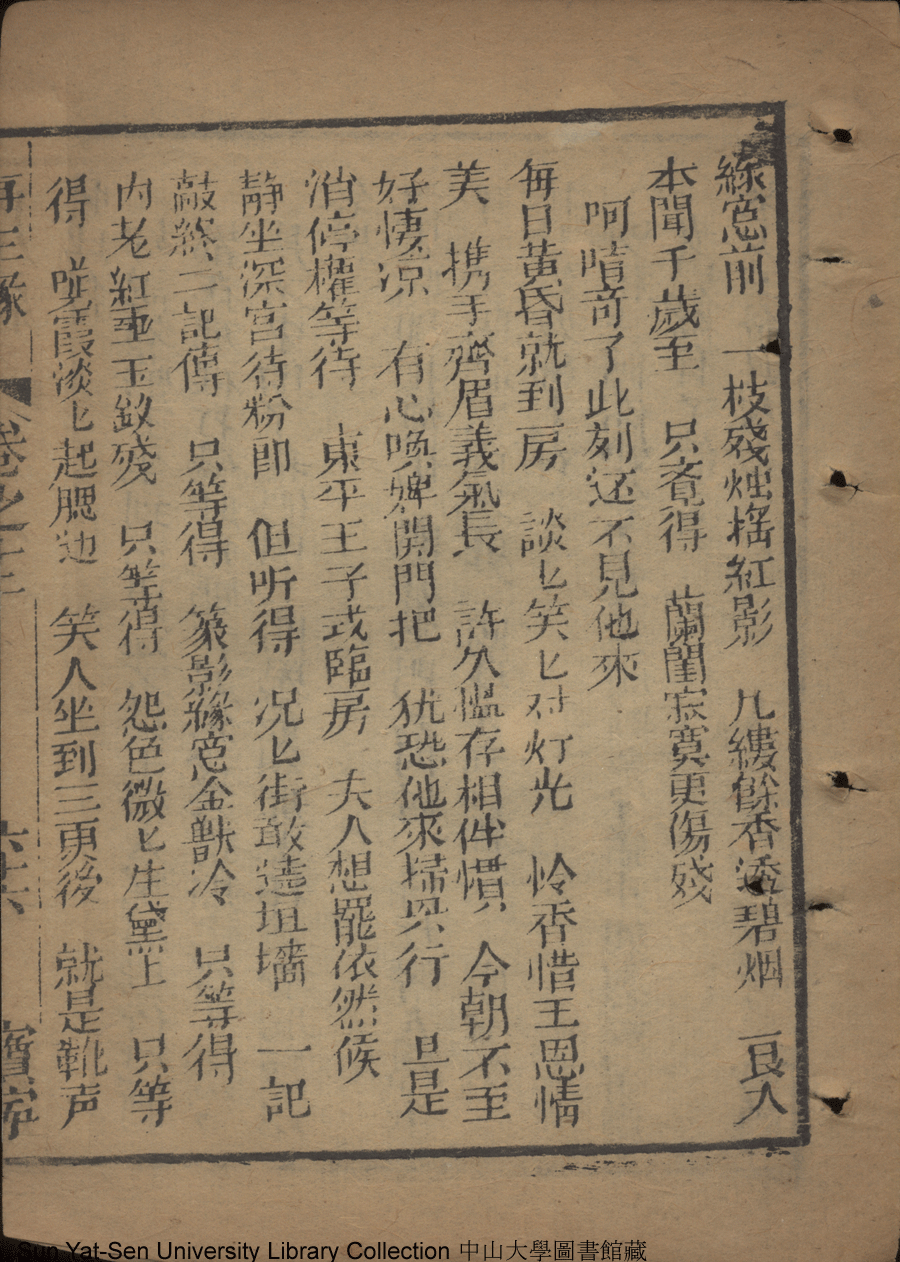 綠窓前　一枝殘烛揺紅影　几縷餘香透碧烟　良人
本聞千歲至　只斉得　蘭閨寂寞更傷殘
呵唶奇了此刻还不見他來
每日黄昏就到房　談匕笑匕对灯光　怜香惜玉恩情
美　携手齊眉義氣長　許久温存相伴慣　今朝不至
好悽凉　有心喚婢開門把　犹恐他來掃只行　旦是
消停權等待　東平王子或臨房　夫人想罷依然候
静坐深宮待粉郎　但听得　况匕街敢遶垣墻　一記
敲終二記傳　只等得　篆影綠窓金獸冷　只等得
内老紅亜玉釹殘　只等得　怨色微匕生黛上　只等
得　暈霞淡匕起腮边　笑人坐到三更後　就是靴声
再三緣　卷之十二　六十六　寳寧
Sun Yat-Sen University Library Collection 中山大學圖書館藏